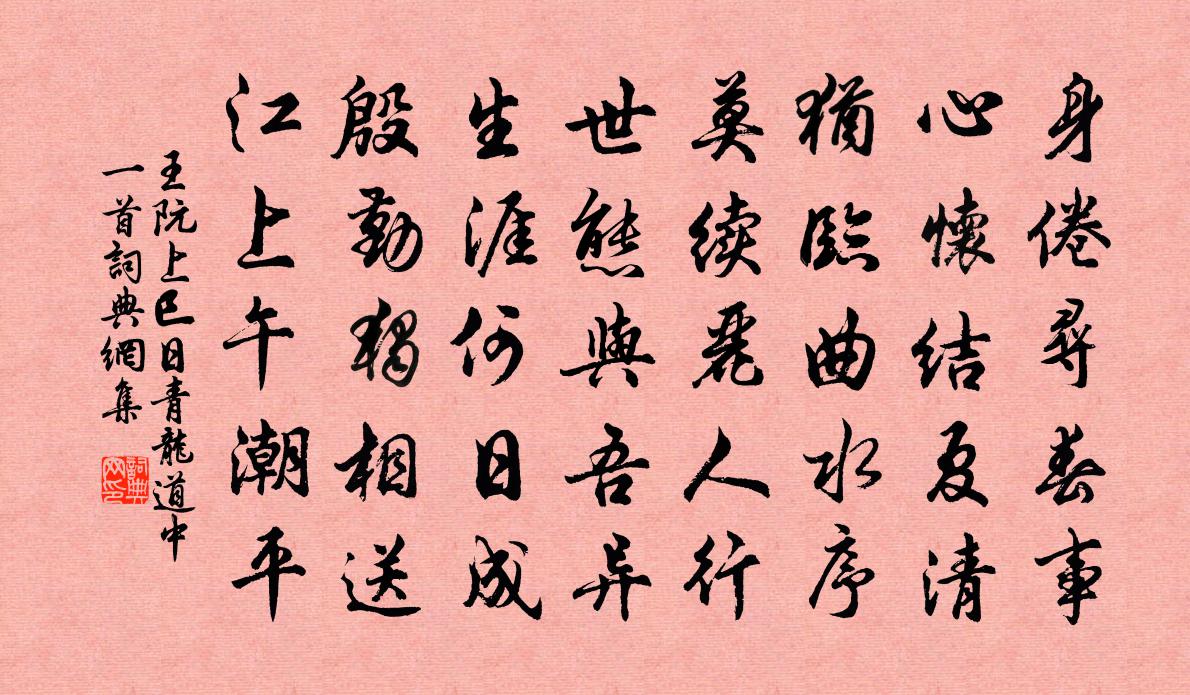 身倦尋春事
心懷結夏清
猶臨曲水序
莫續麗人行
世態與吾异
生涯何日成
殷勤獨相送
江上午潮平
王阮上巳日青龍道中
一首詞典網集
詞典网印